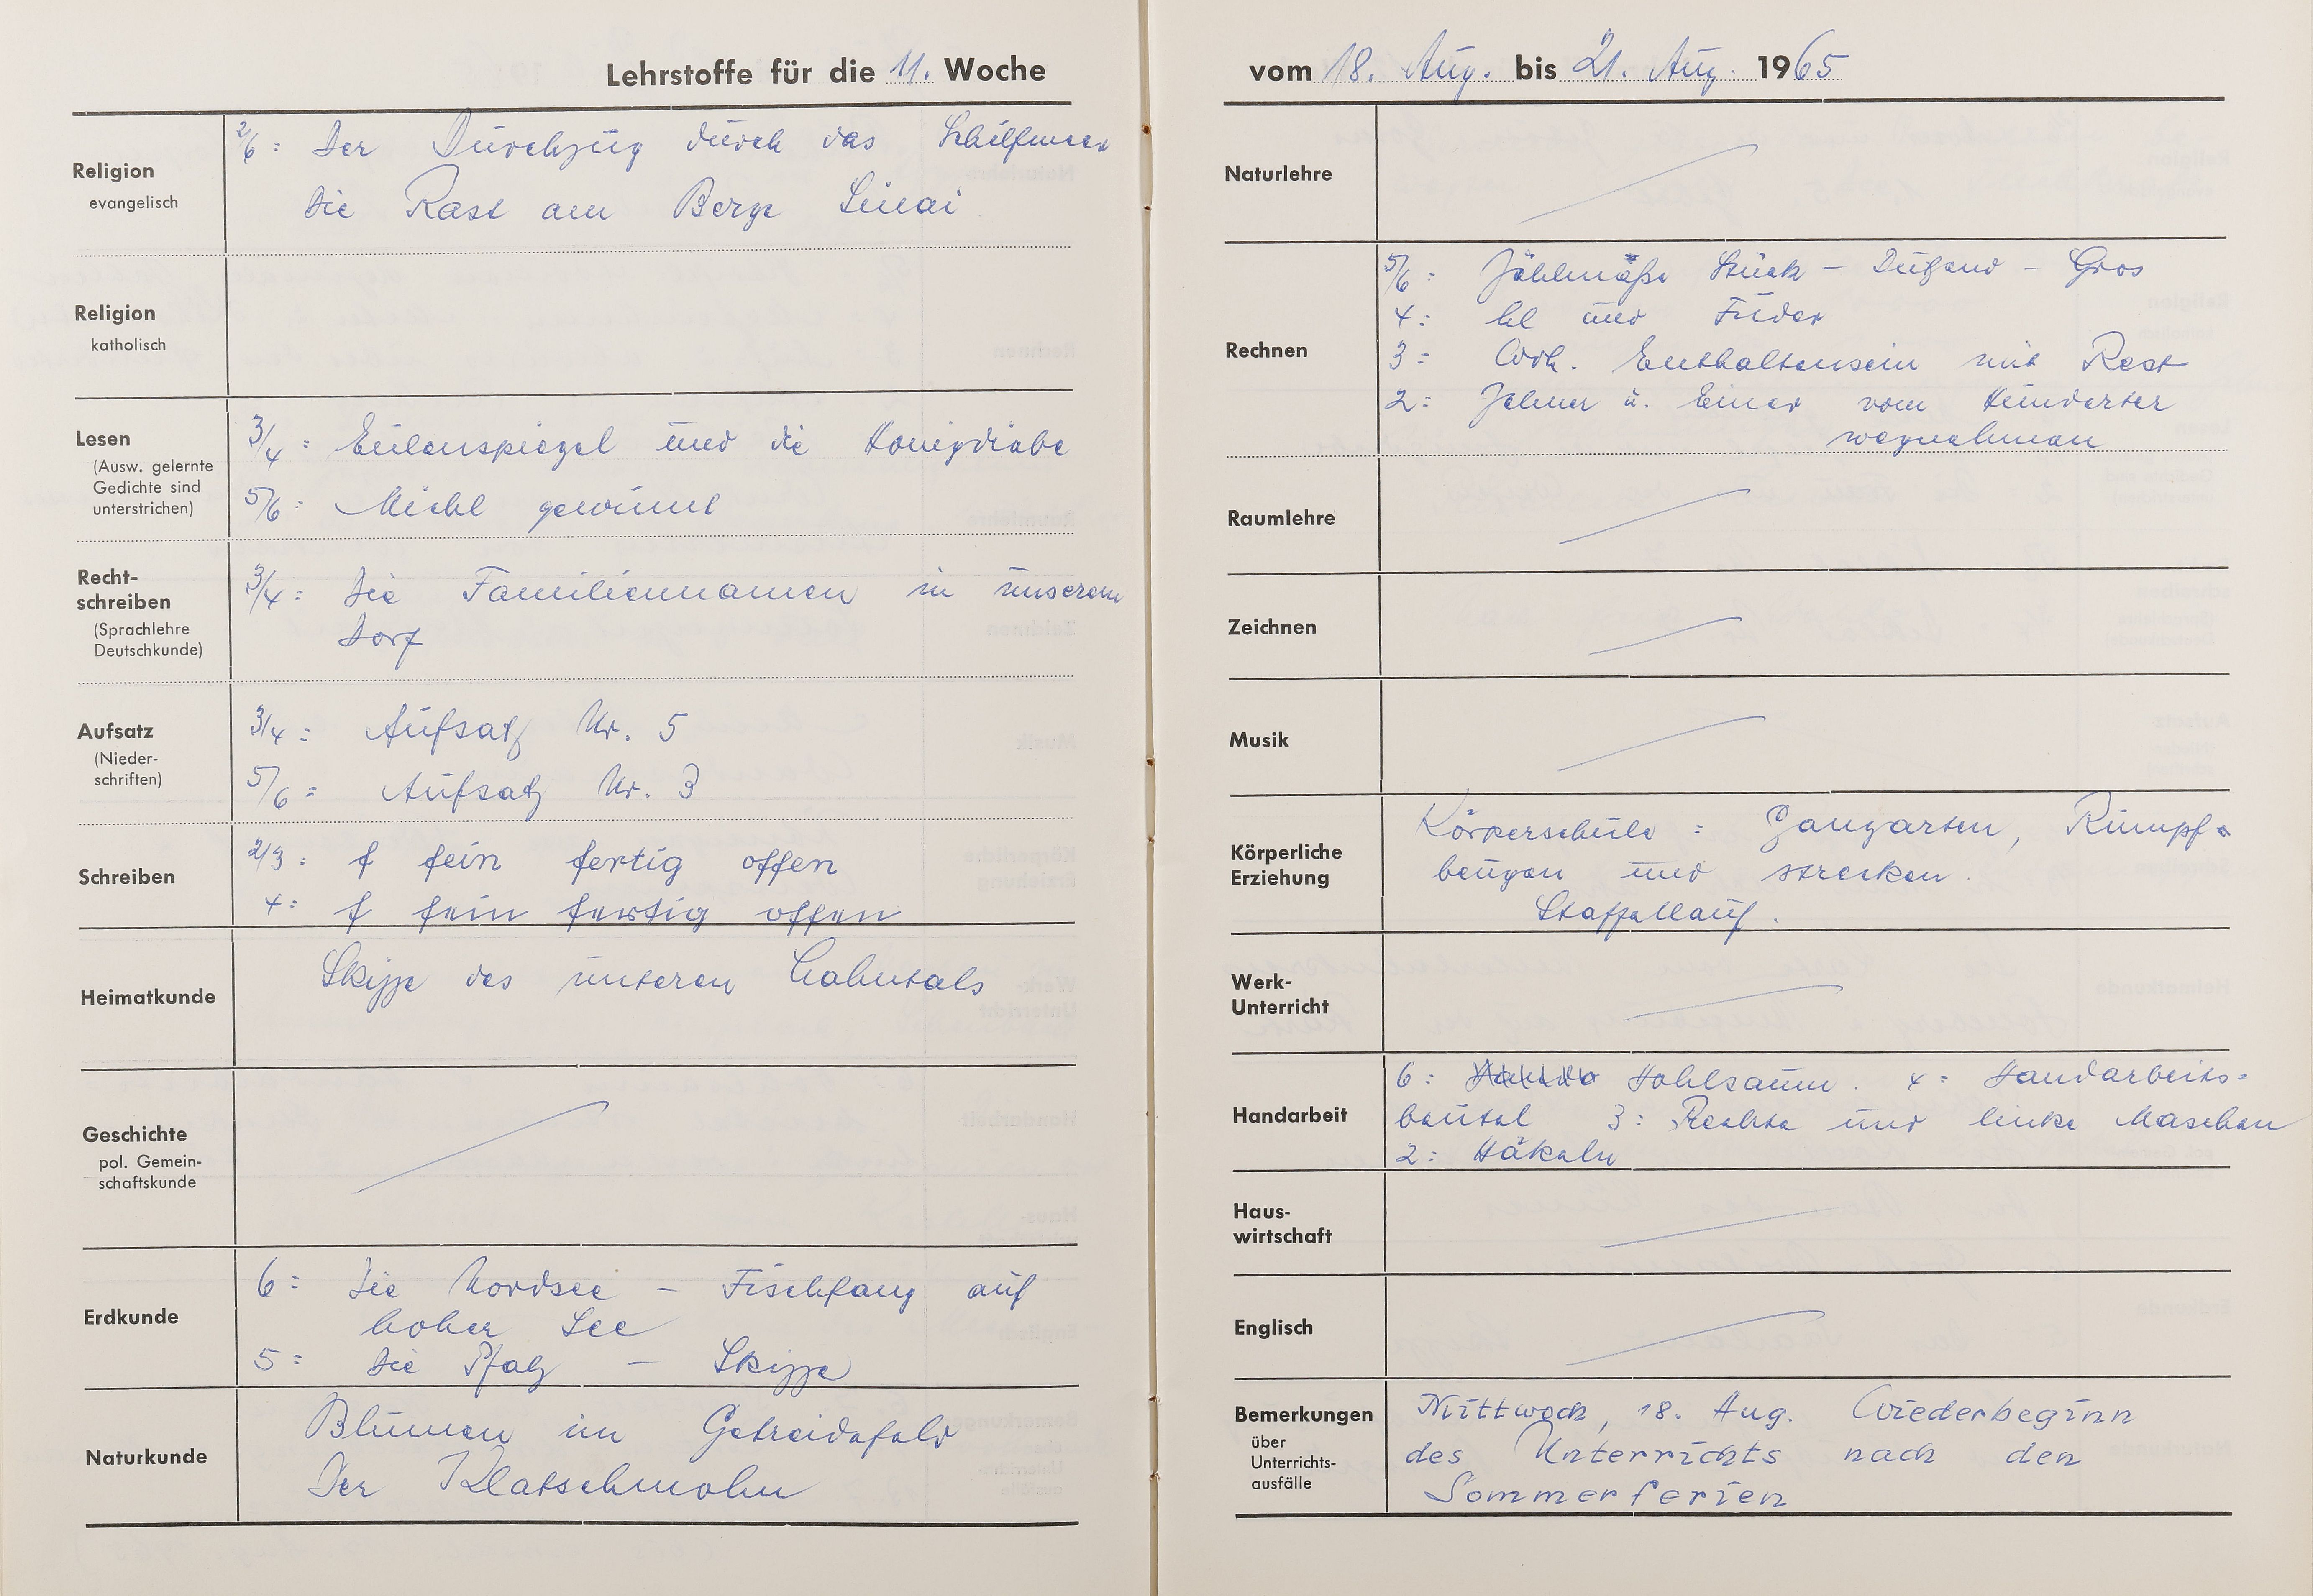 Lehrstoffe für die 11. Woche
Religion
evangelisch
2/6: Der Durchzug durch das Schilfmeer
Die Rast am Berge Sinai
Religion
katholisch
Lesen
(Ausw. gelernte
Gedichte sind
unterstrichen)
3/4: Eulenspiegel und die Honigdiebe
5/6: Michl gewinnt
Recht-
schreiben
(Sprachlehre
Deutschkunde)
3/4: Die Familiennamen in unserem
Dorf
Aufsatz
(Nieder-
schriften)
3/4: Aufsatz Nr. 5
5/6: Aufsatz Nr. 3
Schreiben
2/3: f fein fertig offen
4: f fein fertig offen
Heimatkunde
Skizze des unteren Lahntals
Geschichte
pol. Gemein-
schaftskunde
Erdkunde
6: Die Nordsee - Fischfang auf
hoher See
5: Die Pfalz - Skizze
Naturkunde
Blumen im Getreidefeld
Der Klatschmohn
vom 18. Aug. bis 21. Aug. 1965
Naturlehre
Rechnen
5/6: Zählmaße Stück - Dutzend - Gros
4: hl und Fuder
3: Wdh. Enthaltensein mit Rest
2: Zehner u. Einer vom Hunderter
wegnehmen
Raumlehre
Zeichnen
Musik
Körperliche
Erziehung
Körperschule: Gangarten, Rumpf-
beugen und strecken.
Staffellauf.
Werk-
Unterricht
Handarbeit
6: Hohlsaum. 4: Handarbeits-
beutel 3: Rechte und linke Maschen
2: Häkeln
Haus-
wirtschaft
Englisch
Bemerkungen
über
Unterrichts-
ausfälle
Mittwoch, 18. Aug. Wiederbeginn
des Unterrichts nach den
Sommerferien